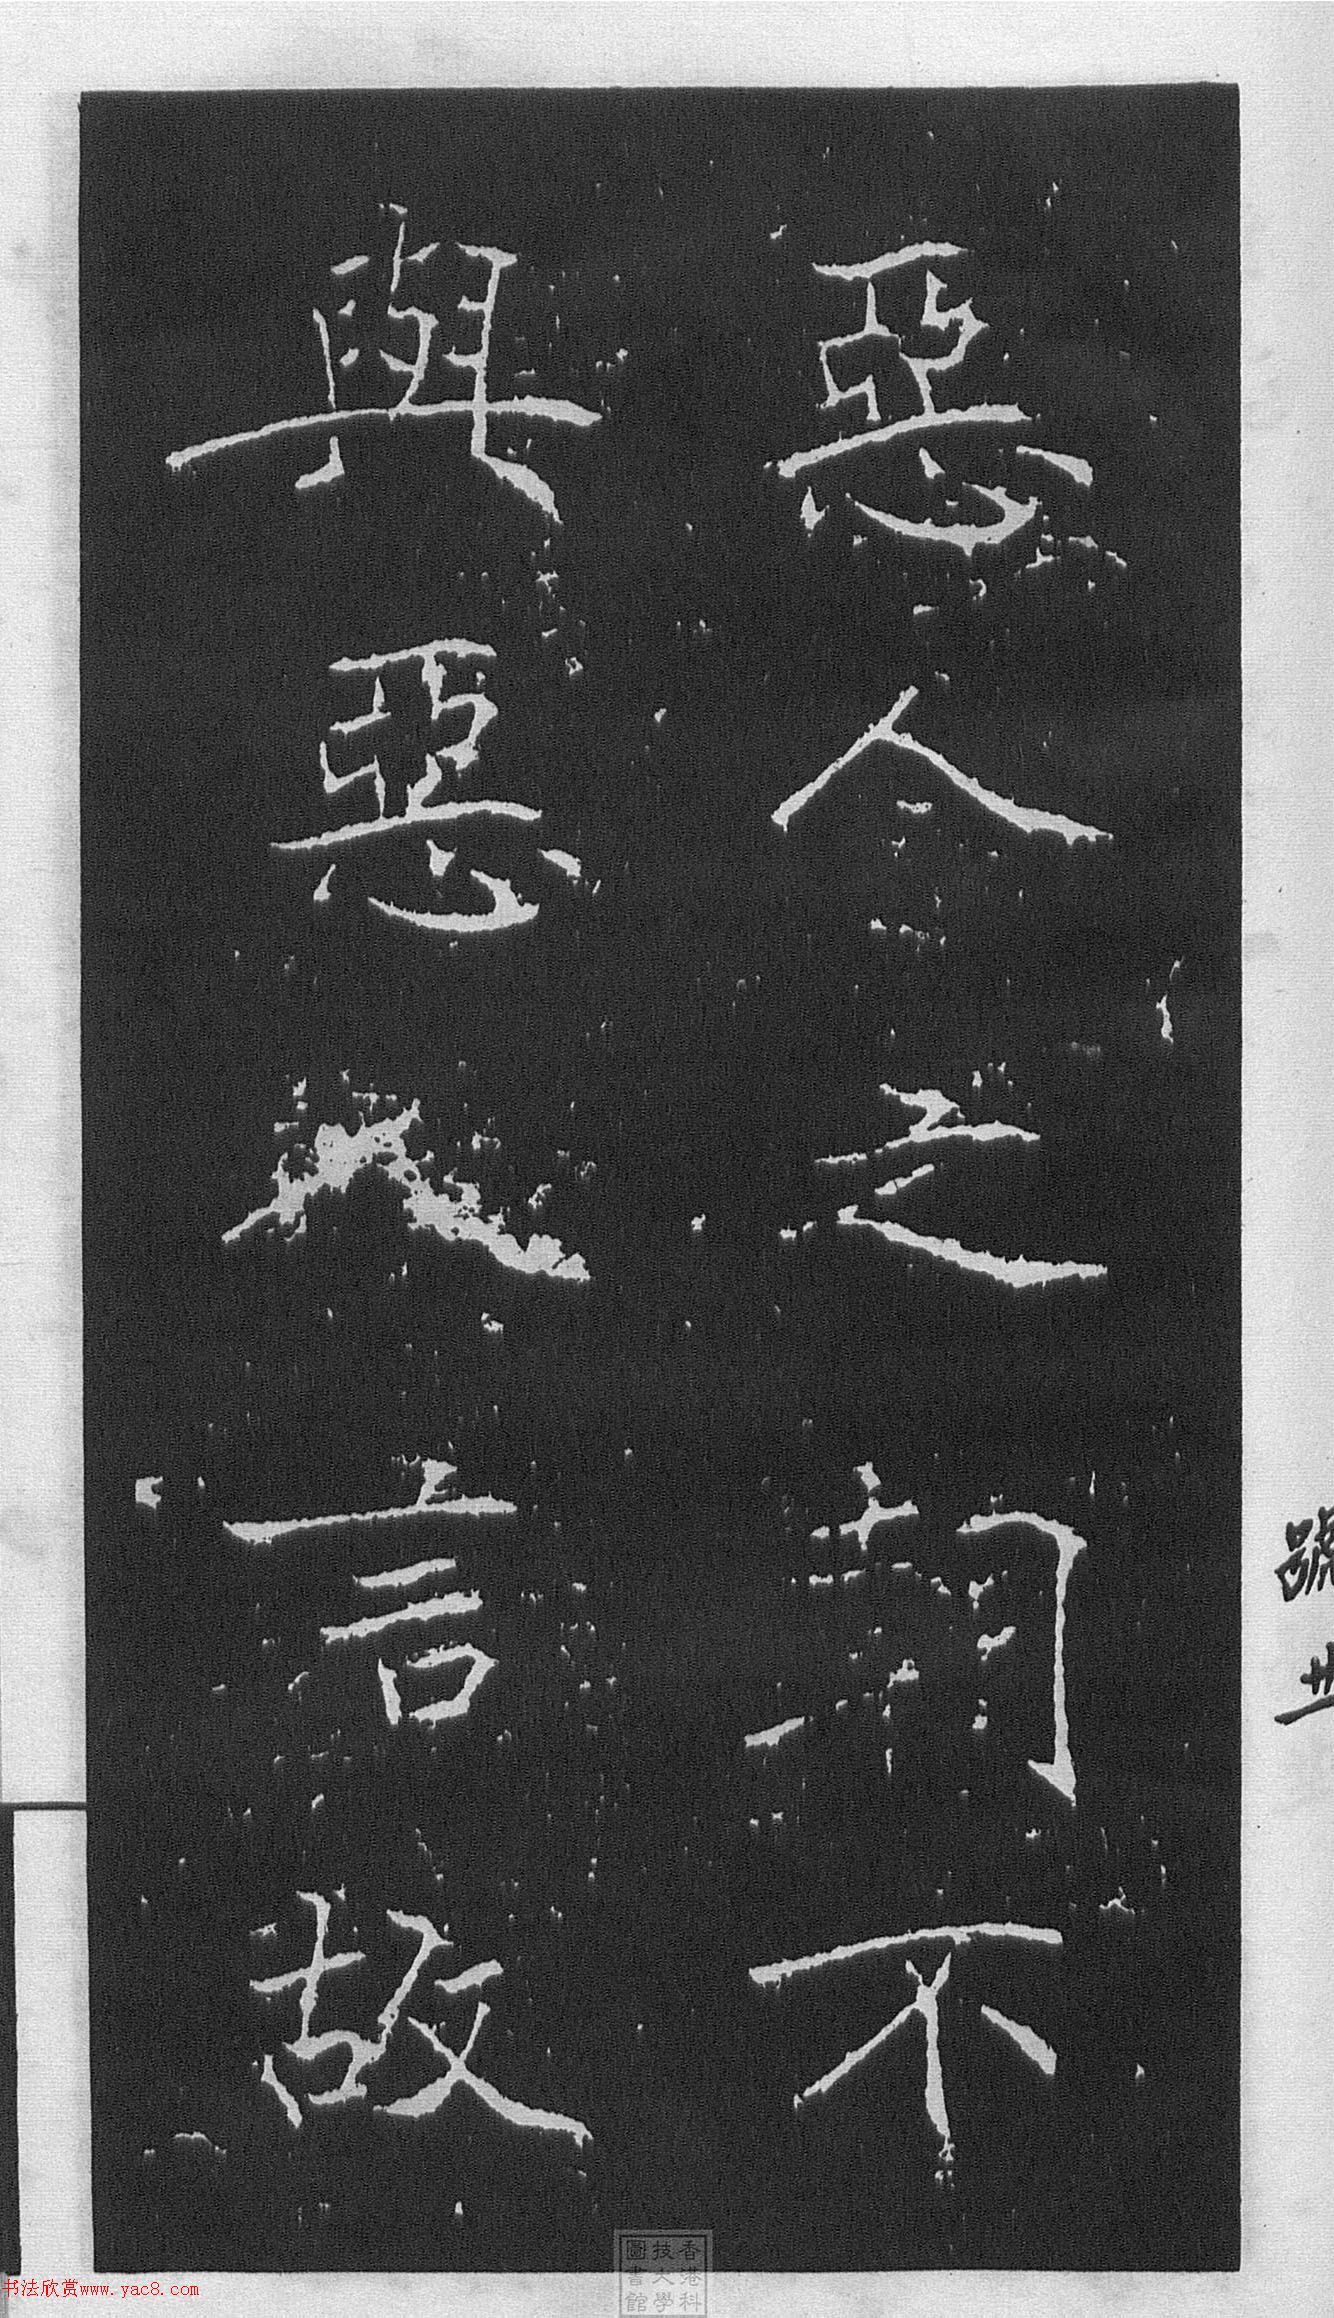 惡人之朝不
與惡人言故
號
书法欣赏www.yac8.com
香港科
技大學
圖書館